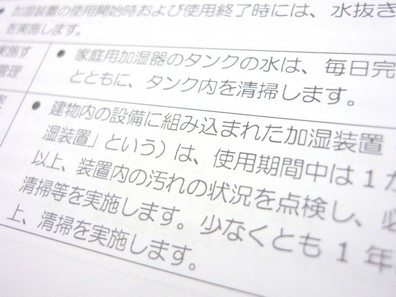 加湿装置の使用開始時および使用終了時には、水抜き
を実施します。
実施す
管理
家庭用加湿器のタンクの水は、毎日完
とともに、タンク内を清掃します。
● 建物内の設備に組み込まれた加湿装置
湿装置」という）は、使用期間中は1か
以上、装置内の汚れの状況を点検し、必
清掃等を実施します。少なくとも1年
上、清掃を実施します。